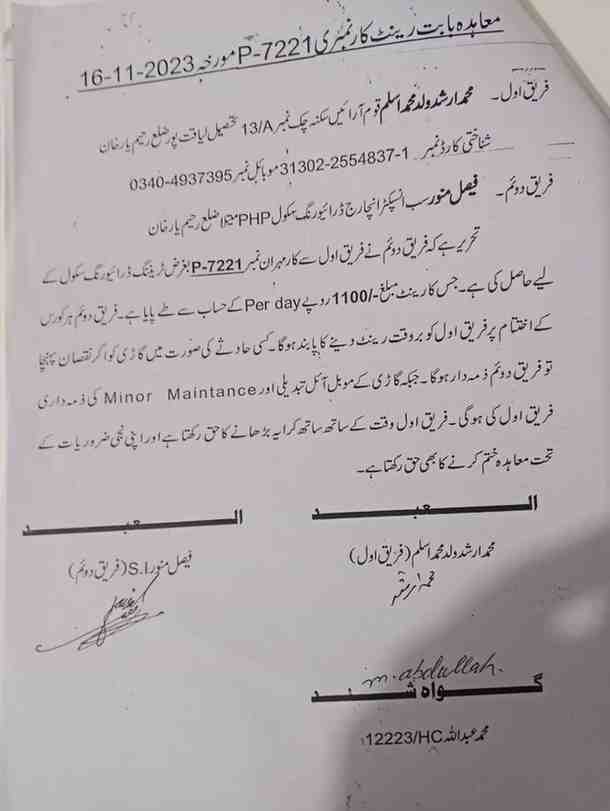 معاہدہ بابت رینٹ کار نمبری P-7221 مورخہ 16-11-2023
فریق اول۔ محمد ارشد ولد محمد اسلم قوم آرائیں سکنہ چک نمبر 13/A تحصیل لیاقت پور ضلع رحیم یار خان
شناختی کارڈ نمبر 31302-2554837-1 موبائل نمبر 0340-4937395
فریق دوئم۔ فیصل منور سب انسپکٹر انچارج ڈرائیورنگ سکول PHP ضلع رحیم یار خان
تحریر ہے کہ فریق دوئم نے فریق اول سے کار مہران نمبر P-7221 بغرض ٹریننگ ڈرائیورنگ سکول کے
لیے حاصل کی ہے۔ جس کا رینٹ مبلغ -/1100 روپے Per day کے حساب سے طے پایا ہے۔ فریق دوئم ہر کورس
کے اختتام پر فریق اول کو بروقت رینٹ دینے کا پابند ہوگا۔ کسی حادثے کی صورت میں گاڑی کو اگر نقصان پہنچا
تو فریق دوئم ذمہ دار ہوگا۔ جبکہ گاڑی کے موبل آئل تبدیلی اور Minor Maintance کی ذمہ داری
فریق اول کی ہوگی۔ فریق اول وقت کے ساتھ ساتھ کرایہ بڑھانے کا حق رکھتا ہے اور اپنی نجی ضروریات کے
تحت معاہدہ ختم کرنے کا بھی حق رکھتا ہے۔
العبد
العبد
محمد ارشد ولد محمد اسلم (فریق اول)
فیصل منور S.I (فریق دوئم)
محمد ارشد
m. abdullah.
گواہ شد
محمد عبداللہ 12223/HC